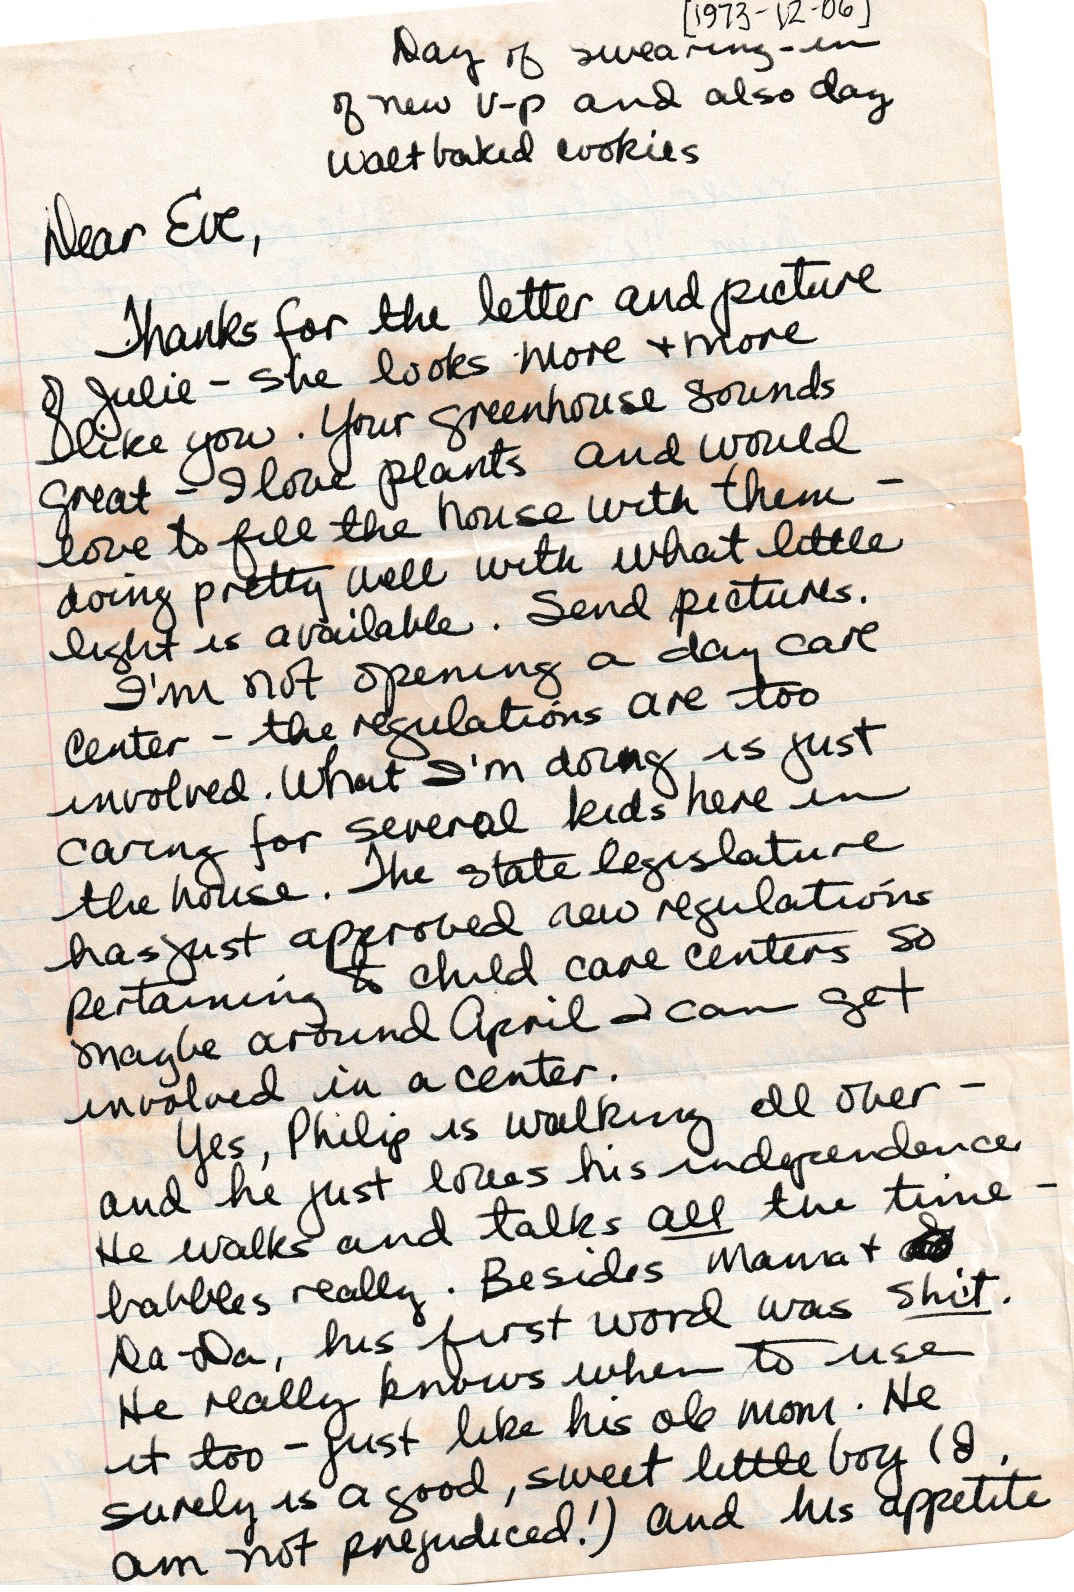 [1973-12-06]
Day of swearing-in
of new V-P and also day
Walt baked cookies
Dear Eve,
Thanks for the letter and picture
of Julie - she looks more + more
like you. Your greenhouse sounds
great - I love plants and would
love to fill the house with them -
doing pretty well with what little
light is available. Send pictures.
I'm not opening a day care
center - the regulations are too
involved. What I'm doing is just
caring for several kids here in
the house. The state legislature
has just approved new regulations
pertaining to child care centers so
maybe around April I can get
involved in a center.
Yes, Philip is walking all over -
and he just loves his independence.
He walks and talks all the time -
babbles really. Besides Mama +
Da-Da, his first word was shit.
He really knows when to use
it too - just like his ole mom. He
surely is a good, sweet little boy (I
am not prejudiced!) and his appetite